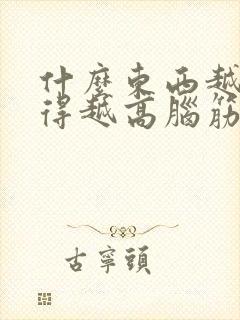 什麼東西越
得越高腦筋
古寧頭